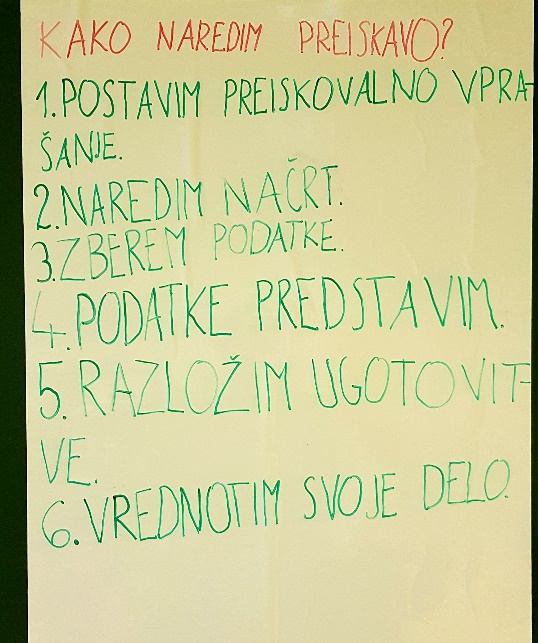 KAKO NAREDIM PREISKAVO?
1. POSTAVIM PREISKOVALNO VPRA-
ŠANJE.
2. NAREDIM NAČRT.
3. ZBEREM PODATKE.
4. PODATKE PREDSTAVIM.
5. RAZLOŽIM UGOTOVIT-
VE.
6. VREDNOTIM SVOJE DELO.